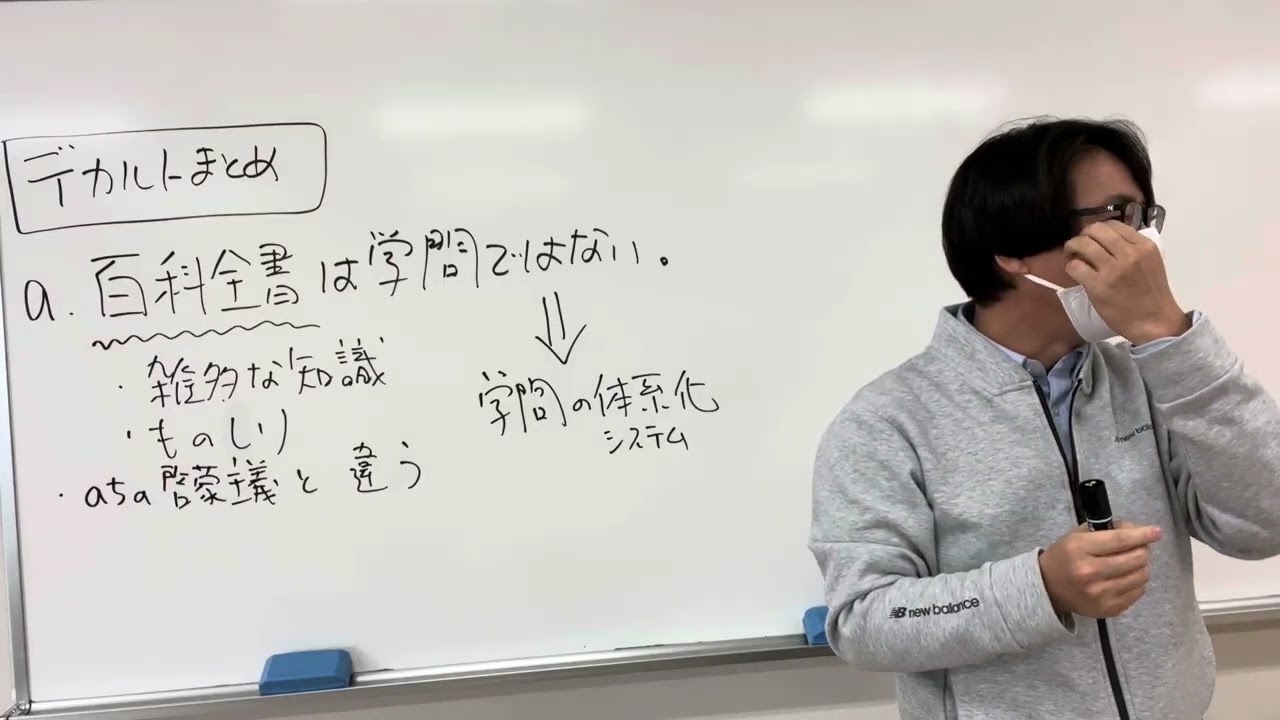 デカルトまとめ
a. 百科全書は学問ではない。
・雑多な知識
・ものしり
・あちの啓蒙主義と違う
⇓
学問の体系化
システム
new balance
new balance